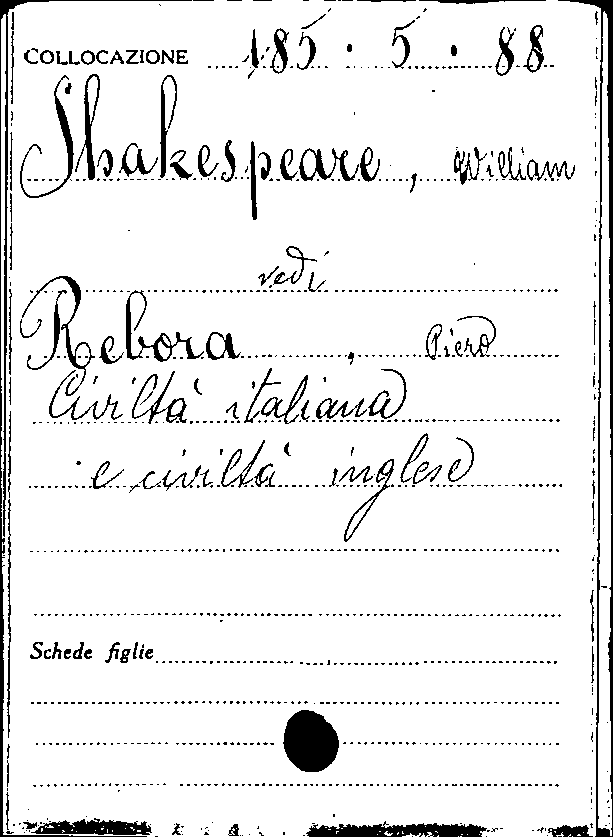 COLLOCAZIONE 185 . 5 . 88
Shakespeare, William
vedi
Rebora, Piero
Civiltà italiana
e civiltà inglese
Schede figlie